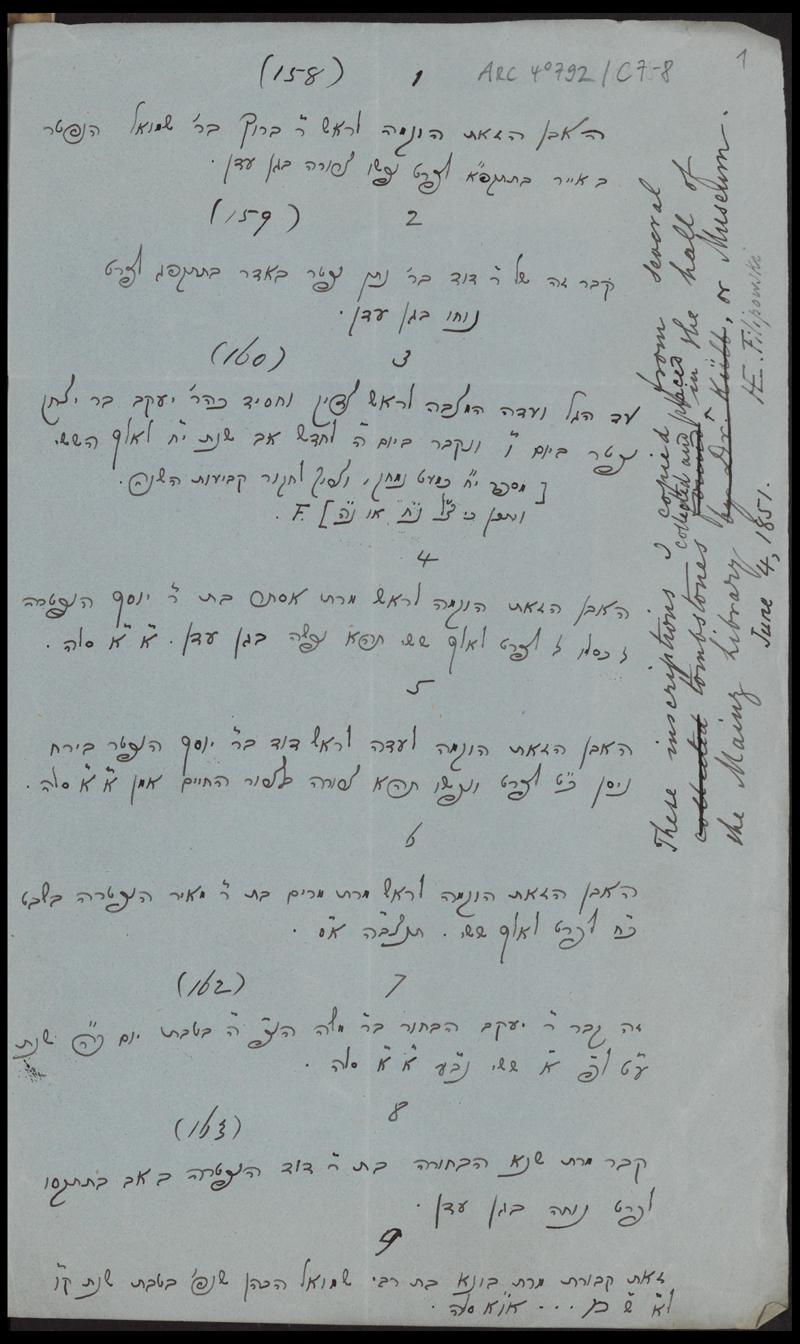 (158) 1 ARC 4° 792 / C 75-8 1
האבן הזאת הוגמה לראש ר׳ ברוך בר׳ שמואל הנפטר
באייר בתתקפ״א לפרט נפשו צרורה בגן עדן.
(159) 2
קבר זה של ר׳ דוד בר׳ נתן נפטר באדר בתתקפג לפרט
נוחו בגן עדן.
(160) 3
עד הגל ועדה המצבה לראש צדיק וחסיד כהר׳ יעקב בר יצחק
נפטר ביום ו׳ ונקבר ביום ה׳ לחדש אב שנת י״ח לאלף הששי
[מספר י״ח כמעט נמחק, וצריך לחקור קביעות השנה.
ויתכן כי צ״ל נ״ח או נ״ה] F.
4
האבן הזאת הוגמה לראש מרת אסתר בת ר׳ יוסף הנפטרה
ז׳ כסלו ז׳ לפרט לאלף ששי תהא נפשה בגן עדן. א״א א״א סלה.
5
האבן הזאת הוגמה לעדה לראש דוד בר׳ יוסף הנפטר בירח
ניסן כ״ט לפרט ונפשו תהא צרורה בצרור החיים אמן א״א סלה.
6
האבן הזאת הוגמה לראש מרת מרים בת ר׳ מאיר הנפטרה בשבט
כ״ח לפרט לאלף ששי. תנצב״ה א״ס.
(162) 7
זה קבר ר׳ יעקב הבחור בר׳ משה הנפ׳ ה׳ בטבת יום כ״ה שנת
ע״ט לפ׳ א׳ ששי נב״ע א״א סלה.
(163) 8
קבר מרת שנא הבחורה בת ר׳ דוד הנפטרה באב בתתקסו
לפרט נוחה בגן עדן.
9
זאת קבורת מרת בונא בת רבי שמואל הכהן שנפ׳ בטבת שנת ק״ו
לא׳ ש׳ ... א״א סלה.
These inscriptions I copied from several
collected collected and placed
tombstones found in the hall of
the Mainz Library by Dr. Külb, or Museum.
June 4, 1851. H. Filipowski